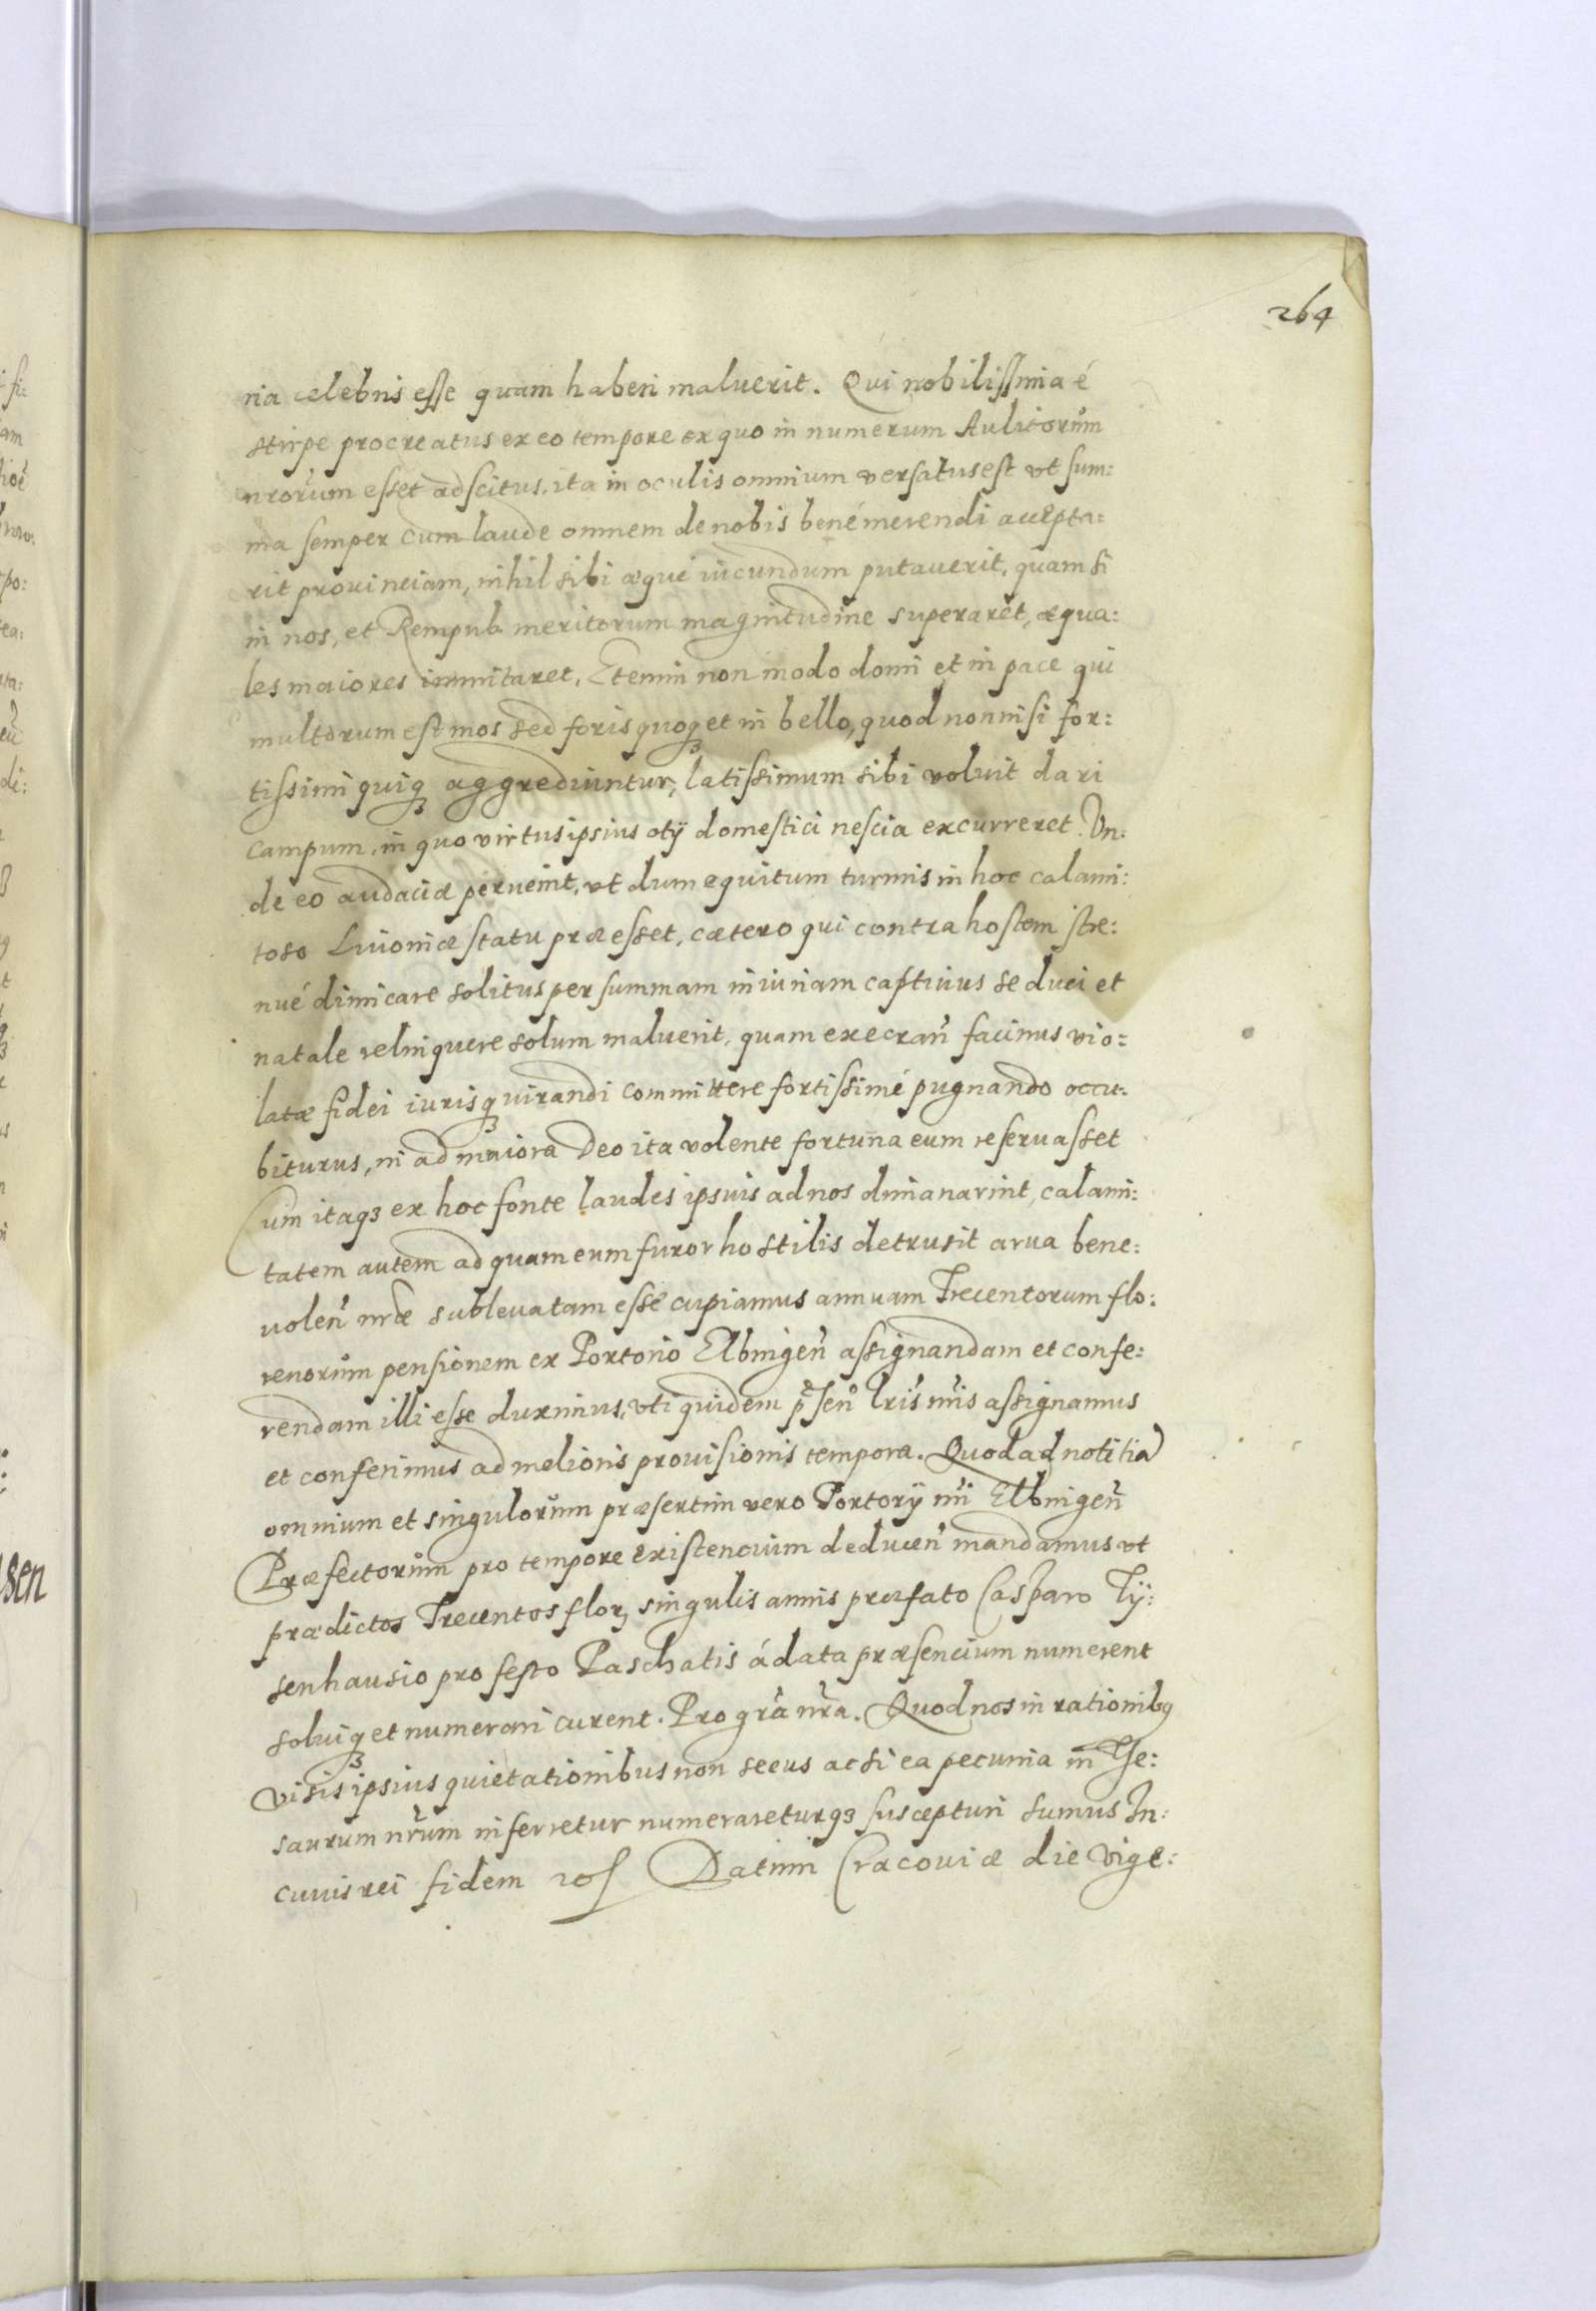 264
ria celebris esse quam haberi maluerit. Qui nobilissima é
stirpe procreatus ex eo tempore ex quo in numerum Aulicorum
nrorum esset adscitus, ita in oculis omnium versatus est vt sum:
ma semper cum laude omnem de nobis bené merendi accepta:
rit prouinciam, nihil sibi æqué iucundum putauerit, quam si
in nos, et Rempub. meritorum magnitudine superaret, æqua:
les maiores immitaret. Etenim non modo domi et in pace qui
multorum est mos sed foris quoqз et in bello, quod non nisi for:
tissimi quiqз aggrediuntur, latissimum sibi voluit dari
campum, in quo virtus ipsius otÿ domestici nescia excurreret. Vn:
de eo audaciæ peruenit, vt dum equitum turmis in hoc calami:
toso Liuoniæ statu præesset, cætero qui contra hostem stre:
nué dimicare solitus per summam iniuriam captiuus se duci et
natale relinquere solum maluerit, quam execran facinus vio:
latæ fidei iurisqз iurandi committere fortissimé pugnando occu:
biturus, ni ad maiora Deo ita volente fortuna eum reseruasset
Cum itaqз ex hoc fonte laudes ipsius ad nos dimanarint, calami:
tatem autem ad quam eum furor hostilis detrusit arua bene:
uolen nræ subleuatam esse cupiamus annuam Trecentorum flo:
renorum pensionem ex Portorio Elbingen assignandam et confe:
rendam illi esse duximus, vti quidem p̃sen lris nris assignamus
et conferimus ad melioris prouisionis tempora. Quod ad notitia
omnium et singulorum præsertim vero Portorÿ nri Elbingen
Præfectorum pro tempore existencium deducen mandamus vt
prædictos Trecentos flor, singulis annis præfato Casparo Tÿ:
senhausio pro festo Paschatis á data præsencium numerent
soluiqз et numerari curent. Pro gra nra. Quod nos in rationibq
visis ipsius quietationibus non secus ac si ea pecunia in The:
saurum nrum inferretur numerareturqз suscepturi sumus In:
cuius rei fidem Datum Cracouiæ die vige: